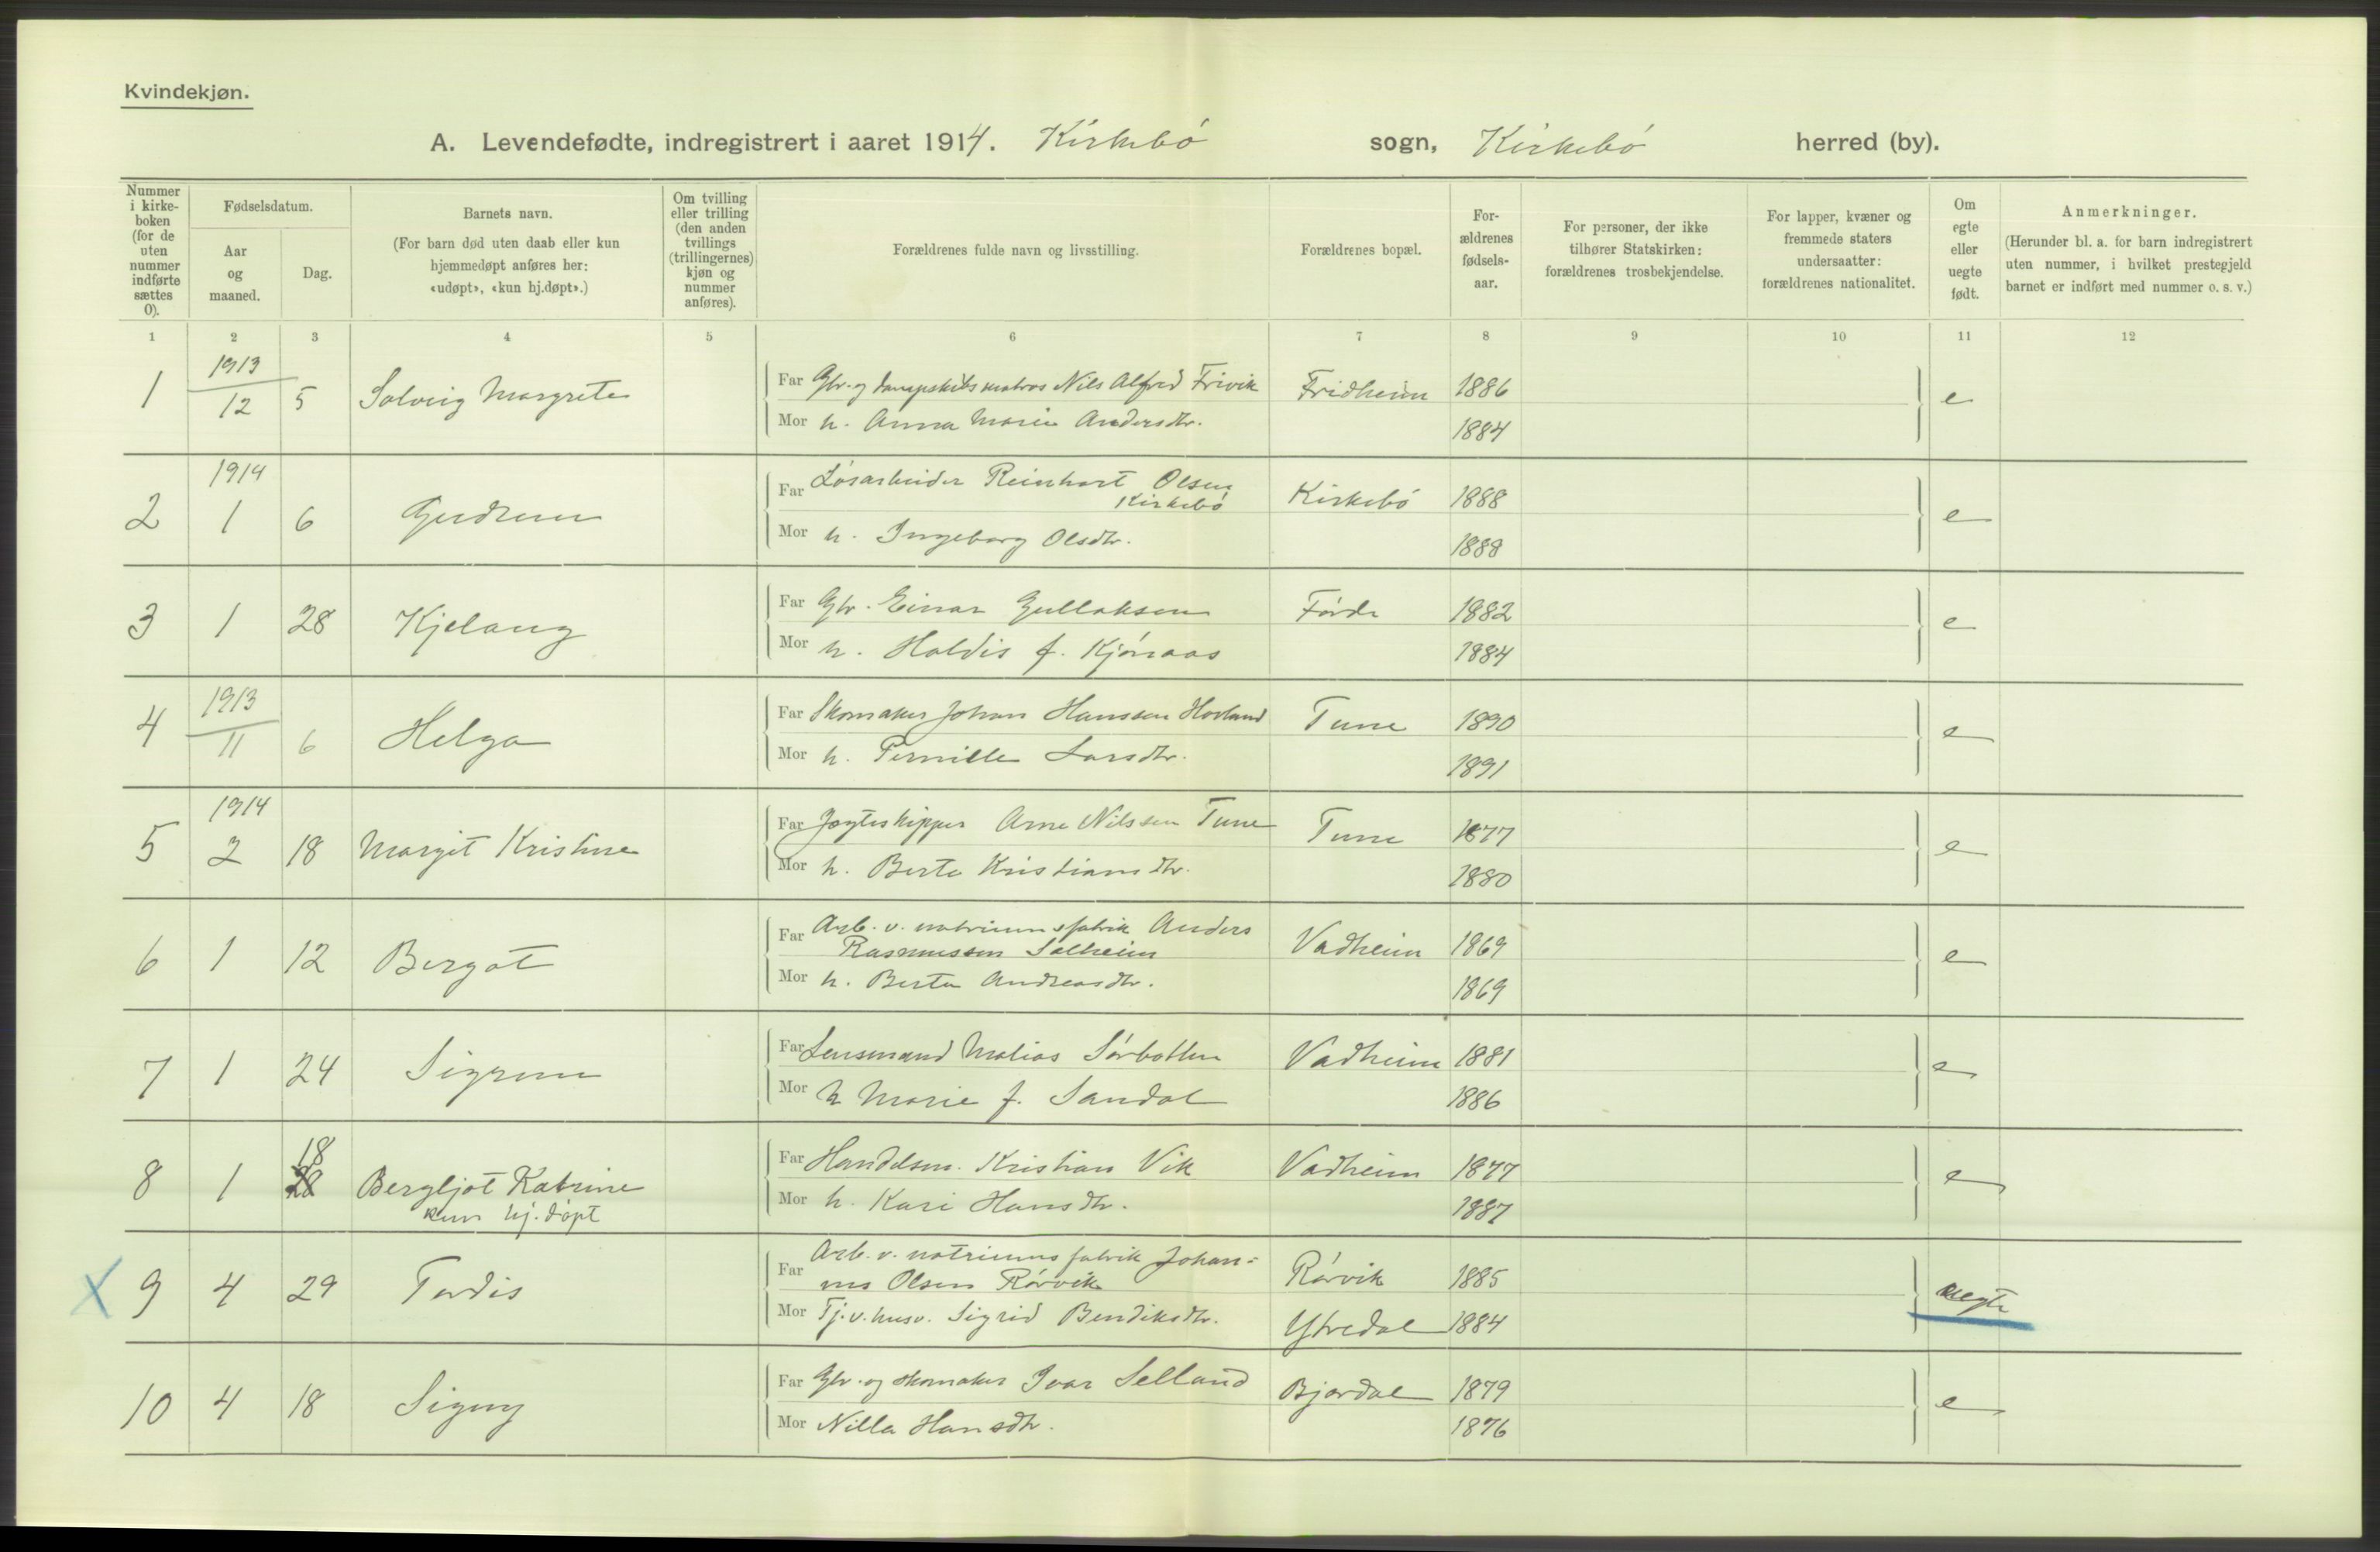 Kvindekjøn.
A. Levendefødte, indregistrert i aaret 1914. Kirkebø sogn, Kirkebø herred (by).
Nummer i kirkeboken (for de uten nummer indførte sættes 0).
Fødselsdatum.
Aar og maaned.
Dag.
Barnets navn.
(For barn død uten daab eller kun hjemmedøpt anføres her: «udøpt», «kun hj.døpt».)
Om tvilling eller trilling (den anden tvillings (trillingernes) kjøn og nummer anføres).
Forældrenes fulde navn og livsstilling.
Forældrenes bopæl.
For-ældrenes fødsels-aar.
For personer, der ikke tilhører Statskirken: forældrenes trosbekjendelse.
For lapper, kvæner og fremmede staters undersaatter: forældrenes nationalitet.
Om egte eller uegte født.
Anmerkninger.
(Herunder bl. a. for barn indregistrert uten nummer, i hvilket prestegjeld barnet er indført med nummer o. s. v.)
1 2 3 4 5 6 7 8 9 10 11 12
1 1913/12 5 Solveig Margrete Far Gbr. og dampskibsmatros Nils Alfred Frivik Fridheim 1886 e
Mor h. Anna Marie Andersdtr. 1884
2 1914 1 6 Gudrun Far Løsarbeider Reinhart Olsen Kirkebø Kirkebø 1888 e
Mor h. Ingeborg Olsdtr. 1888
3 1 28 Kjelaug Far Gbr. Einar Gullaksen Førde 1882 e
Mor h. Haldis f. Kjønaas 1884
4 1913/11 6 Helga Far Skomaker Johan Hanssen Hovland Tune 1890 e
Mor h. Pernille Larsdtr. 1891
5 1914 2 18 Margit Kristine Far Jagteskipper Arne Nilssen Tune Tune 1877 e
Mor h. Berta Kristiansdtr. 1880
6 1 12 Bergot Far Arb. v. natriumsfabrik Anders
Rasmussen Solheim Vadheim 1869 e
Mor h. Berta Andreasdtr. 1869
7 1 24 Sigrun Far Lensmand Matias Sørbotten Vadheim 1881 e
Mor h Marie f. Sandal 1886
8 1 18 Bergljot Katrine Far Handelsm. Kristian Vik Vadheim 1877 e
kun hj. døpt Mor h. Kari Hansdtr. 1887
X 9 4 29 Tordis Far Arb. v. natriumsfabrik Johan-
nes Olsen Rørvik Rørvik 1885 uegte
Mor Tj. v. husv. Sigrid Bendiksdtr. Ytredal 1884
10 4 18 Signy Far Gbr. og skomaker Ivar Selland Bjordal 1879 e
Mor Nilla Hansdtr. 1876